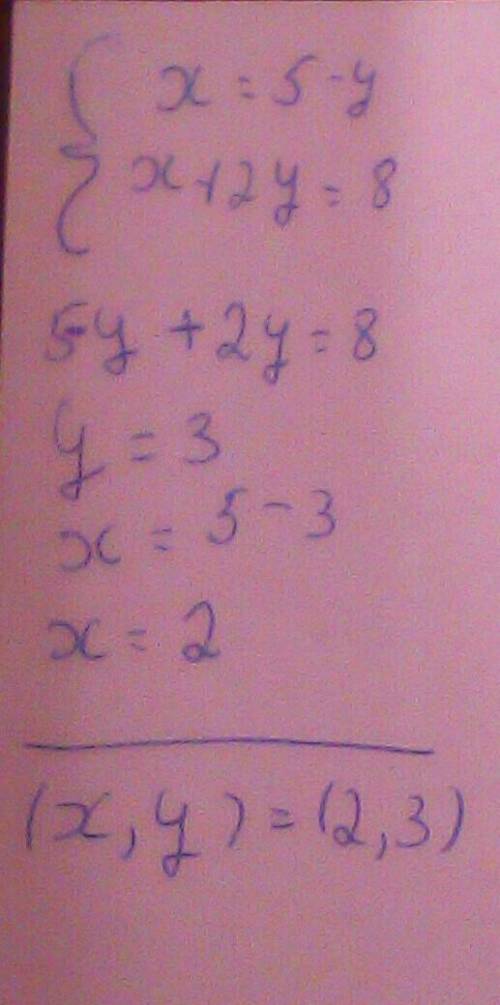 x = 5 - y
x + 2y = 8
5-y + 2y = 8
y = 3
x = 5 - 3
x = 2
(x, y) = (2, 3)